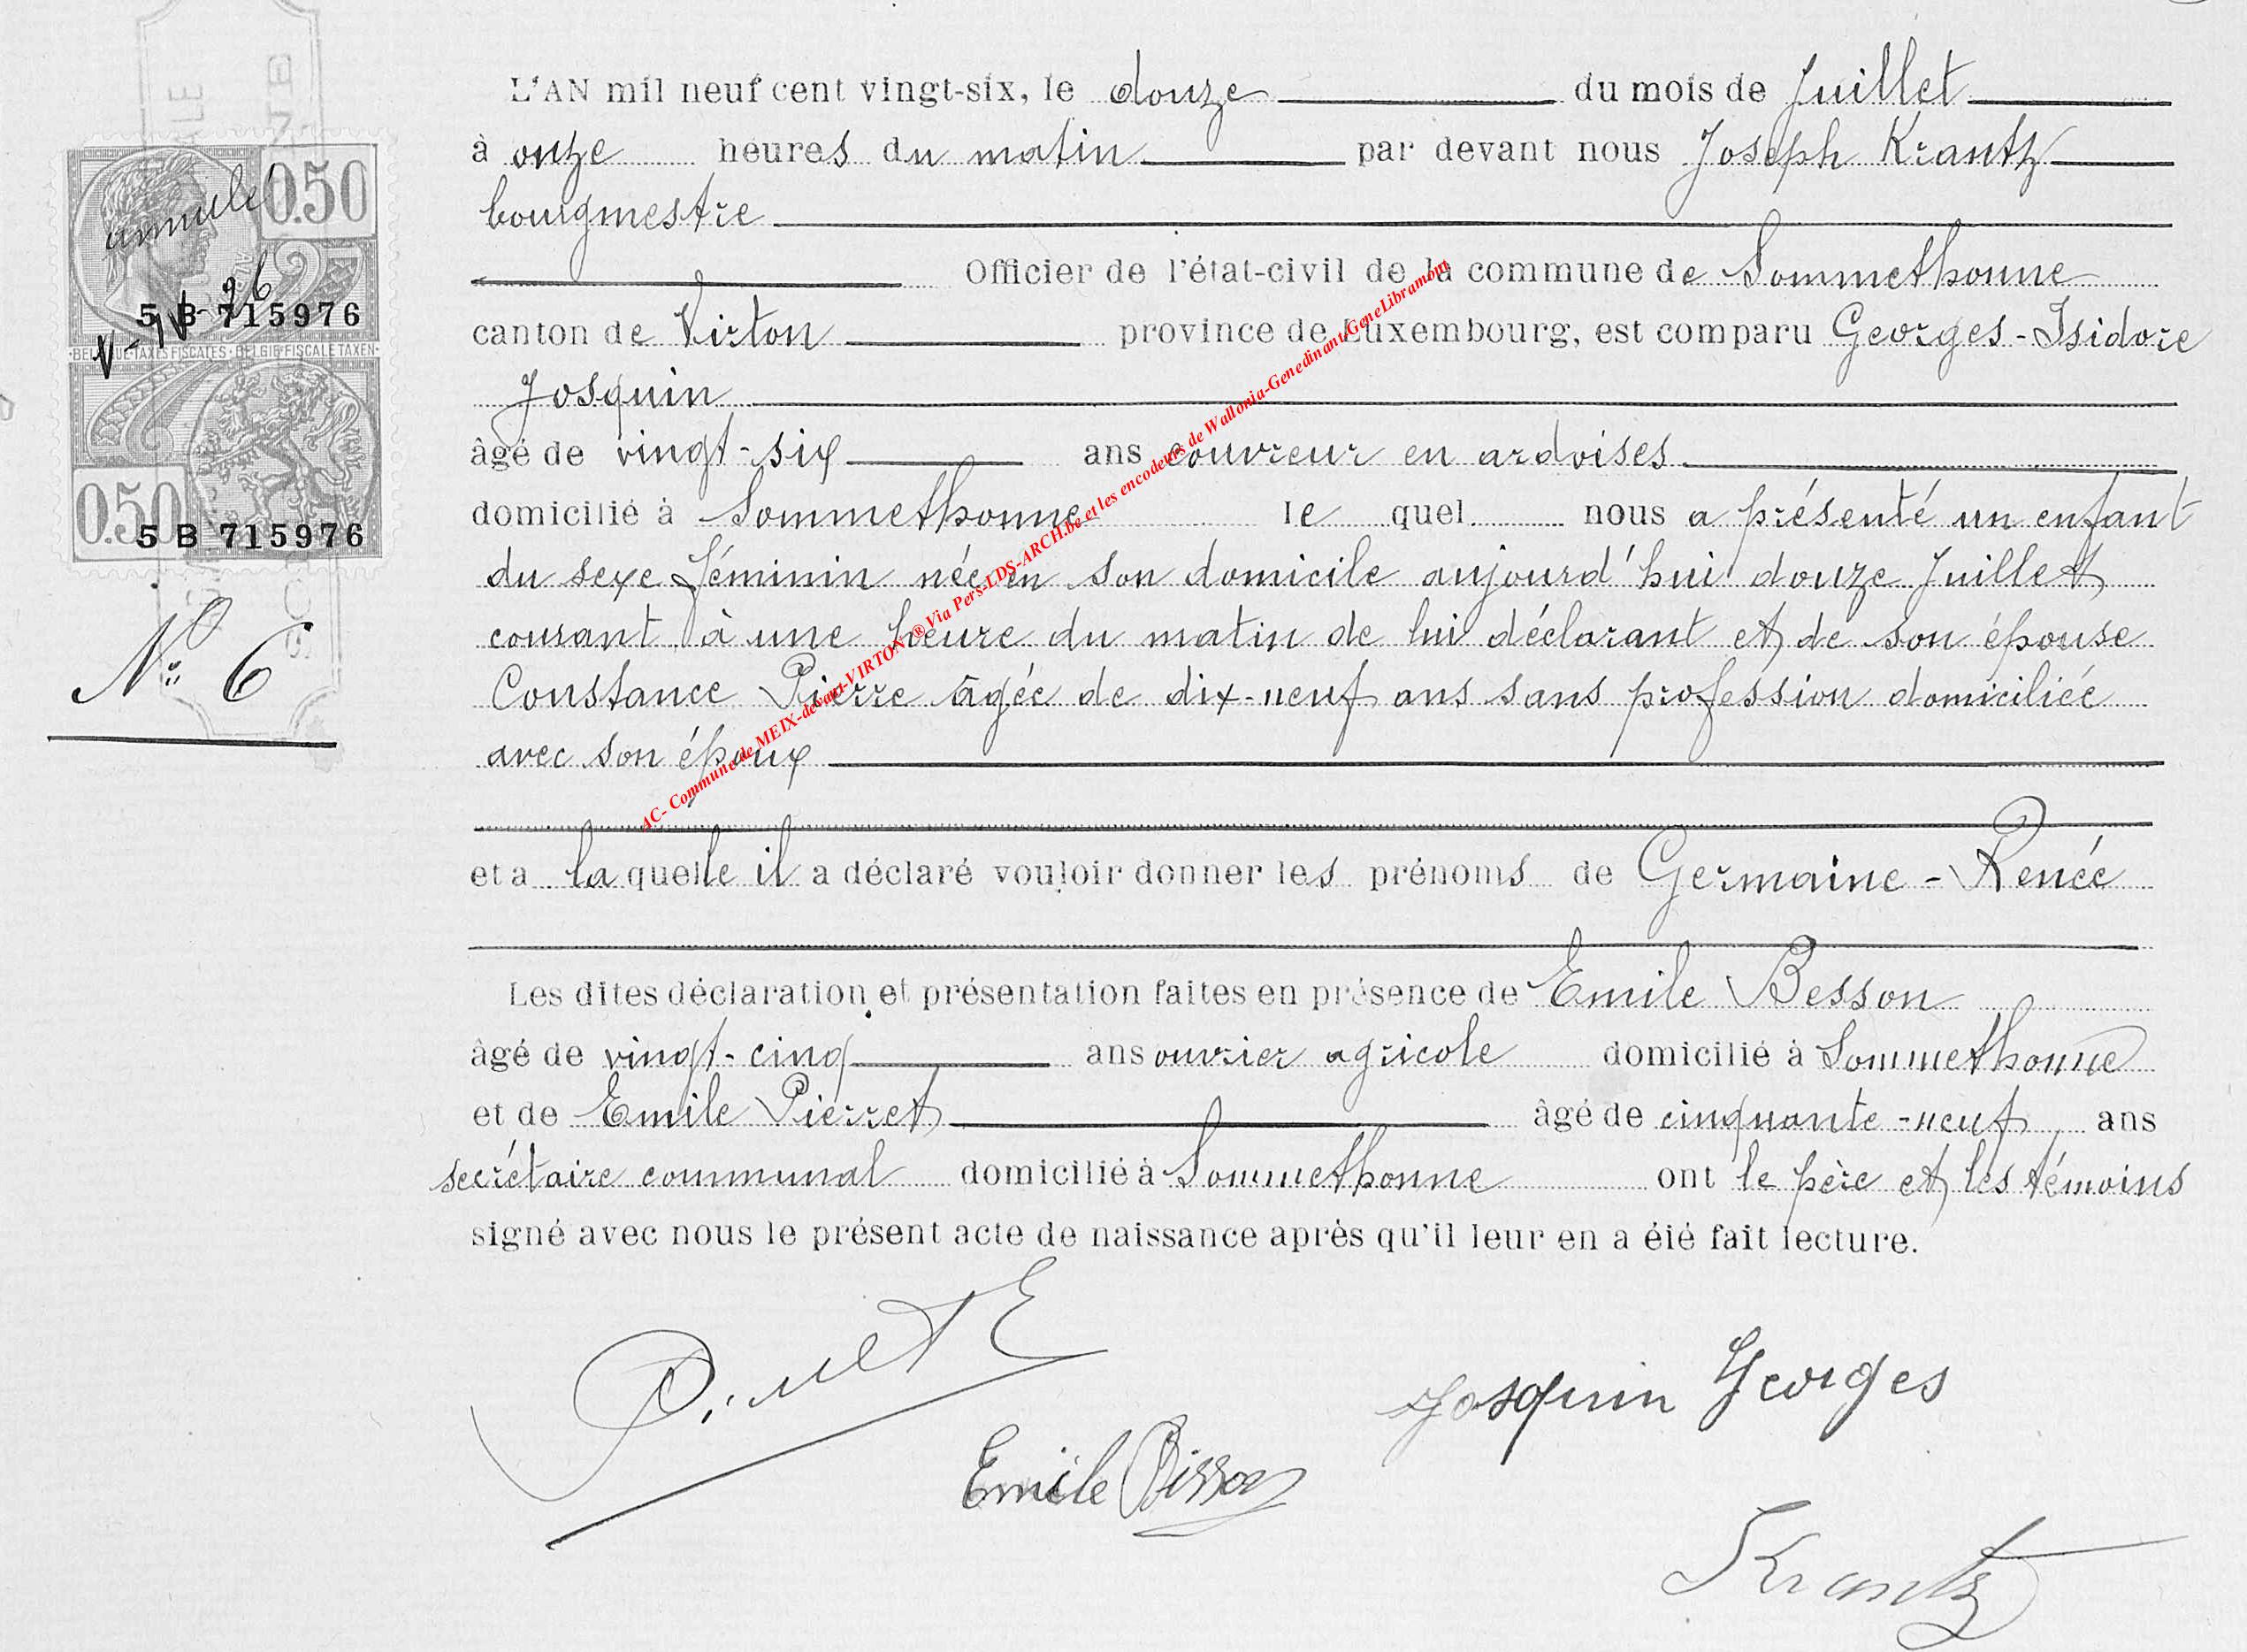 L'AN mil neuf cent vingt-six, le douze du mois de Juillet
à onze heures du matin par devant nous Joseph Krantz
bourgmestre
Officier de l'état-civil de la commune de Sommethonne
canton de Virton province de Luxembourg, est comparu Georges-Isidore
Josquin
âgé de vingt-six ans couvreur en ardoises
domicilié à Sommethonne le quel nous a présenté un enfant
du sexe féminin née en son domicile aujourd'hui douze Juillet
courant à une heure du matin de lui déclarant et de son épouse
Constance Pierre âgée de dix-neuf ans sans profession domiciliée
avec son époux
et a laquelle il a déclaré vouloir donner les prénoms de Germaine-Renée
Les dites déclaration et présentation faites en présence de Emile Besson
âgé de vingt-cinq ans ouvrier agricole domicilié à Sommethonne
et de Emile Pierret âgé de cinquante-neuf ans
secrétaire communal domicilié à Sommethonne ont le père et les témoins
signé avec nous le présent acte de naissance après qu'il leur en a été fait lecture.
Josquin Georges
Emile Bisson
Krantz
annulé
0.50
5 B 715976
BELGIQUE-TAXES FISCALES · BELGIE-FISCALE TAXEN
0.50
5 B 715976
No 6
AC- Commune de MEIX-devant-VIRTON ® Via Pers-LDS-ARCH.be et les encodeurs de Wallonia-Genedinant-GeneLibramont